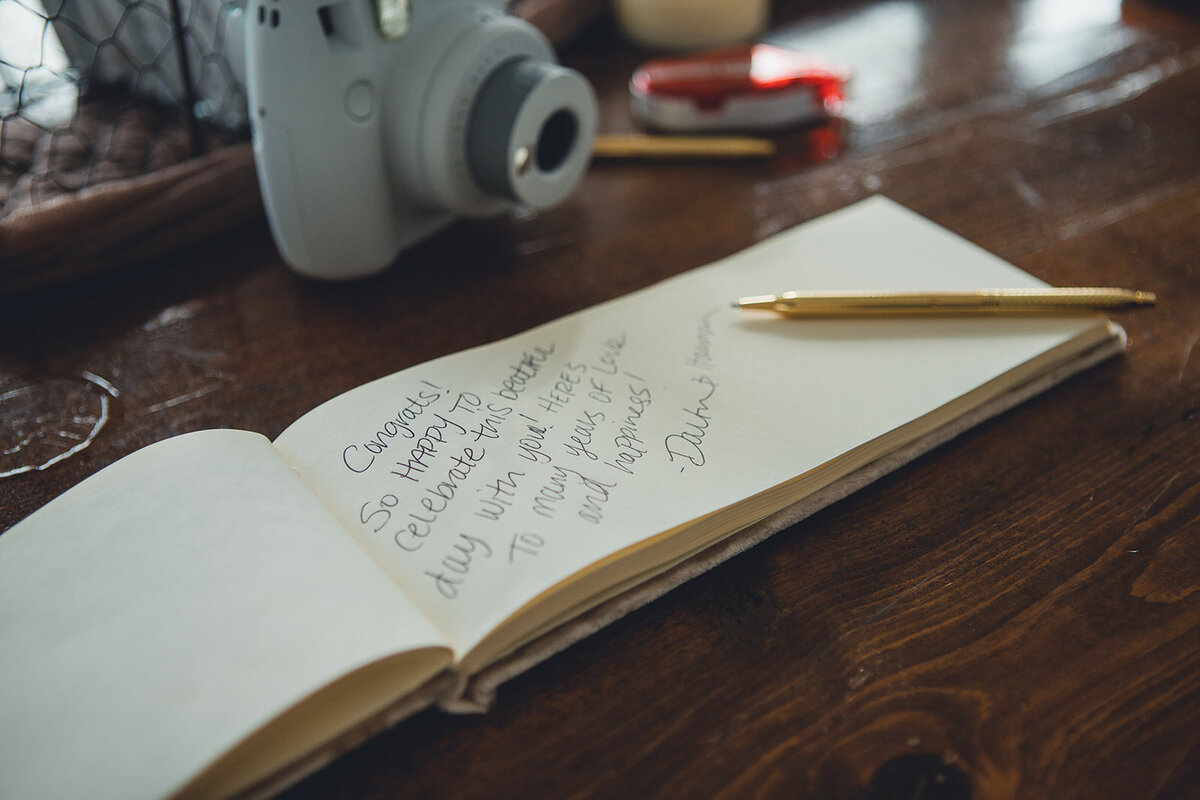 Congrats!
So HAPPY TO
celebrate this beautiful
day with you! HERES
To many years of Love
and happiness!